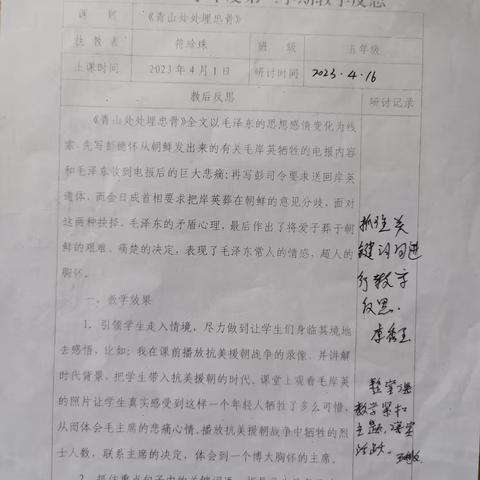 期教学反思
课 题 《青山处处埋忠骨》
任教者 符珍珠 班 级 五年级
上课时间 2023年4月1日 研讨时间 2023.4.16
教后反思 研讨记录
《青山处处埋忠骨》全文以毛泽东的思想感情变化为线
索，先写彭德怀从朝鲜发出来的有关毛岸英牺牲的电报内容
和毛泽东收到电报后的巨大悲痛；再写彭司令要求送回岸英
遗体，而金日成首相要求把岸英葬在朝鲜的意见分歧，面对
这两种抉择，毛泽东的矛盾心理，最后作出了将爱子葬于朝
鲜的艰难、痛楚的决定，表现了毛泽东常人的情感，超人的
胸怀。
一、教学效果
1、引领学生走入情境，尽力做到让学生们身临其境地
去感悟，比如：我在课前播放抗美援朝战争的录像，并讲解
时代背景，把学生带入抗美援朝的时代。课堂上观看毛岸英
的照片让学生真实感受到这样一个年轻人牺牲了多么可惜，
从而体会毛主席的悲痛心情。播放抗美援朝战争中牺牲的烈
士人数，联系主席的决定，体会到一个博大胸怀的主席。
抓住关
键词句进
行教学
反思。
整堂课
教学紧扣
主题，课堂
活跃。